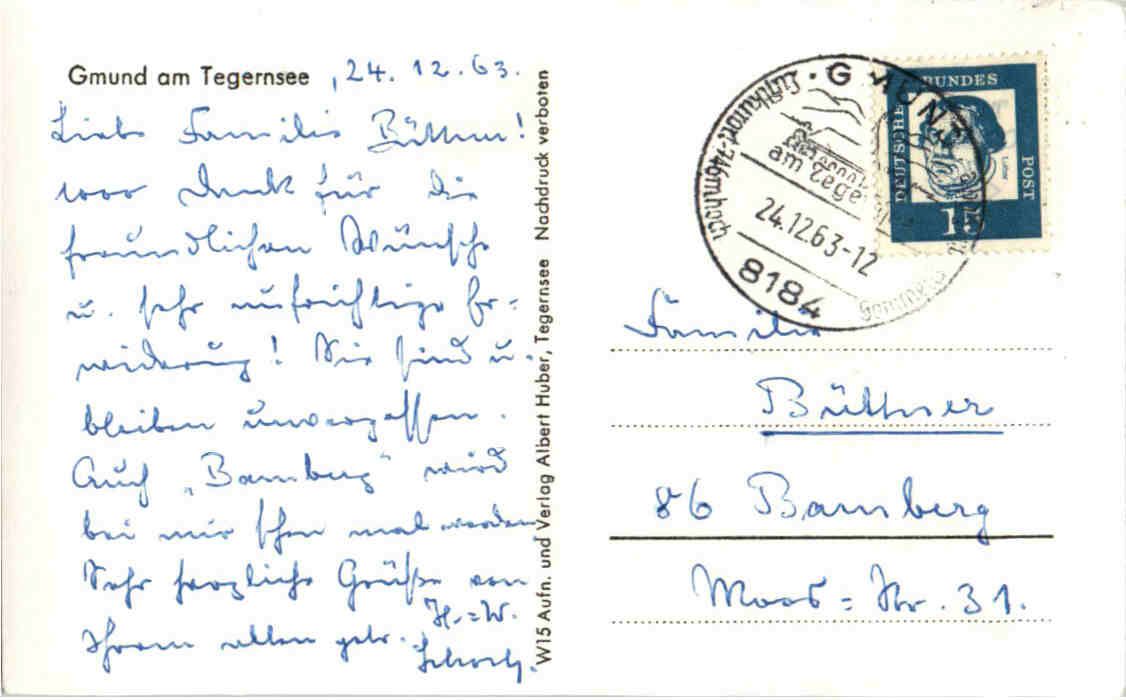 Gmund am Tegernsee , 24. 12. 63.
Liebe Familie Büttner!
1000 Dank für die
freundlichen Wünsche
u. sehr aufrichtige Er-
widerung! Sie sind u.
bleiben unvergessen.
Auch „Bamberg" wird
bei mir schon mal werden.
Sehr herzliche Grüße von
Ihrem alten
H.=W.
W15 Aufn. und Verlag Albert Huber, Tegernsee Nachdruck verboten
GMUND
am Tege
Luftkurort 746m
24.12.63-12
8184
DEUTSCHE BUNDESPOST
15
Familie
Büttner
86 Bamberg
Moos=Str. 31.